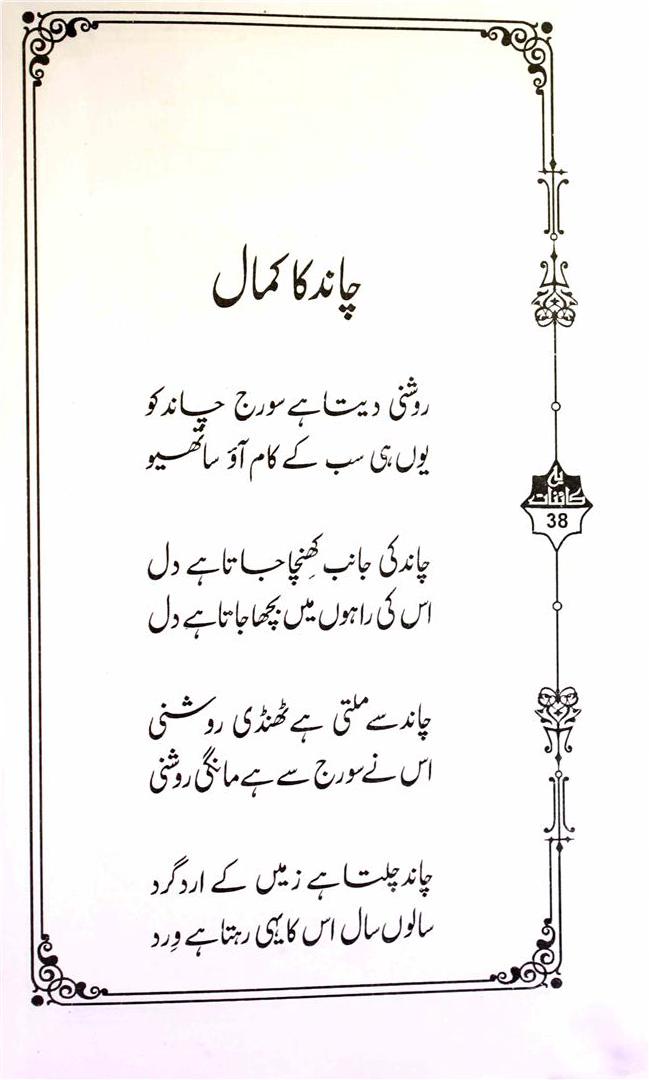 چاند کا کمال
روشنی دیتا ہے سورج چاند کو
یوں ہی سب کے کام آؤ ساتھیو
چاند کی جانب کھنچا جاتا ہے دل
اس کی راہوں میں بچھا جاتا ہے دل
چاند سے ملتی ہے ٹھنڈی روشنی
اس نے سورج سے ہے مانگی روشنی
چاند چلتا ہے زمیں کے ارد گرد
سالوں سال اس کا یہی رہتا ہے وِرد
یہ
کائنات
38